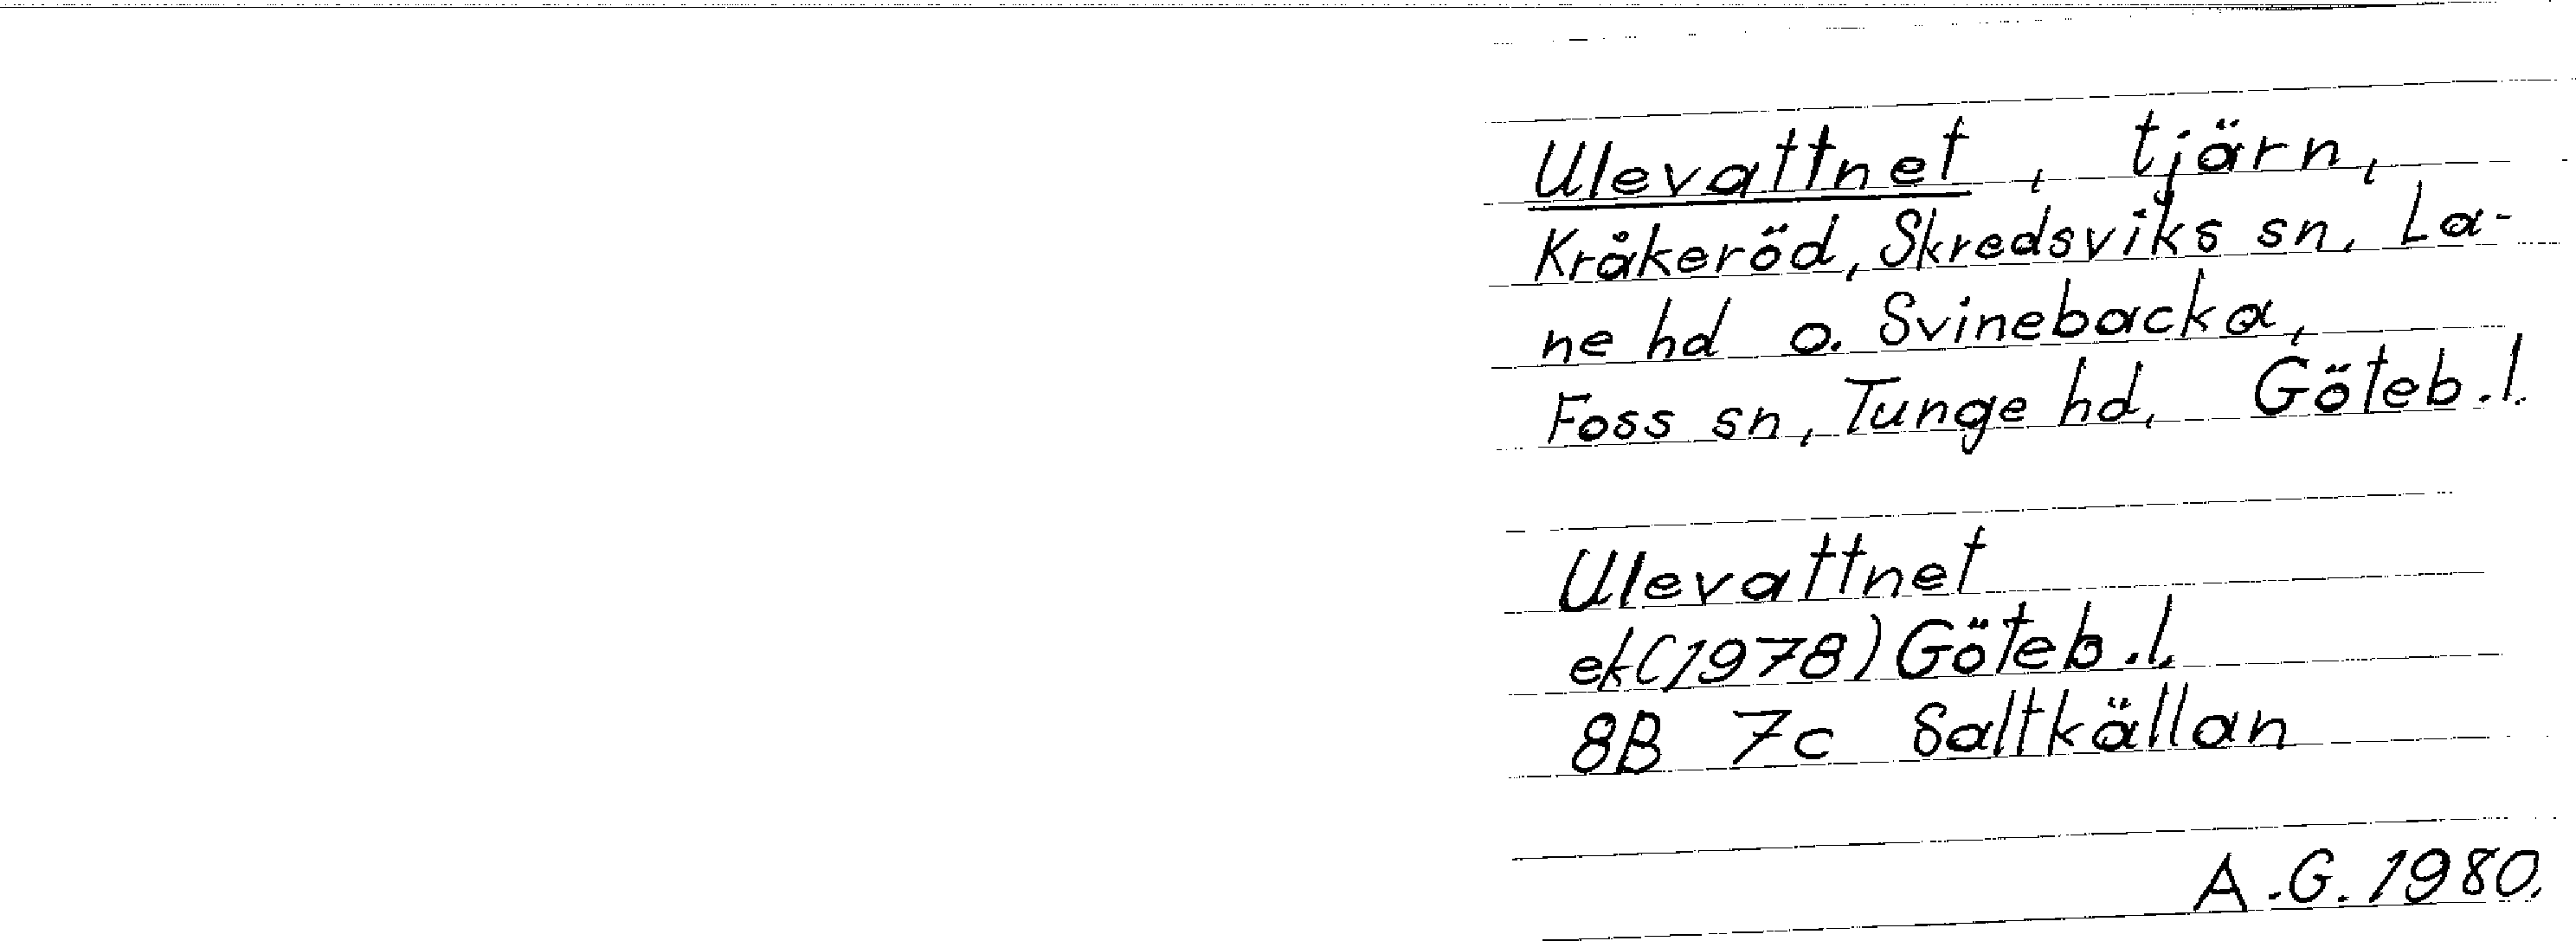 Ulevattnet, tjärn,
Kråkeröd, Skredsviks sn, La-
ne hd o. Svinebacka,
Foss sn, Tunge hd, Göteb.l.
Ulevattnet
ek (1978) Göteb.l.
8B 7c Saltkällan
A.G. 1980.